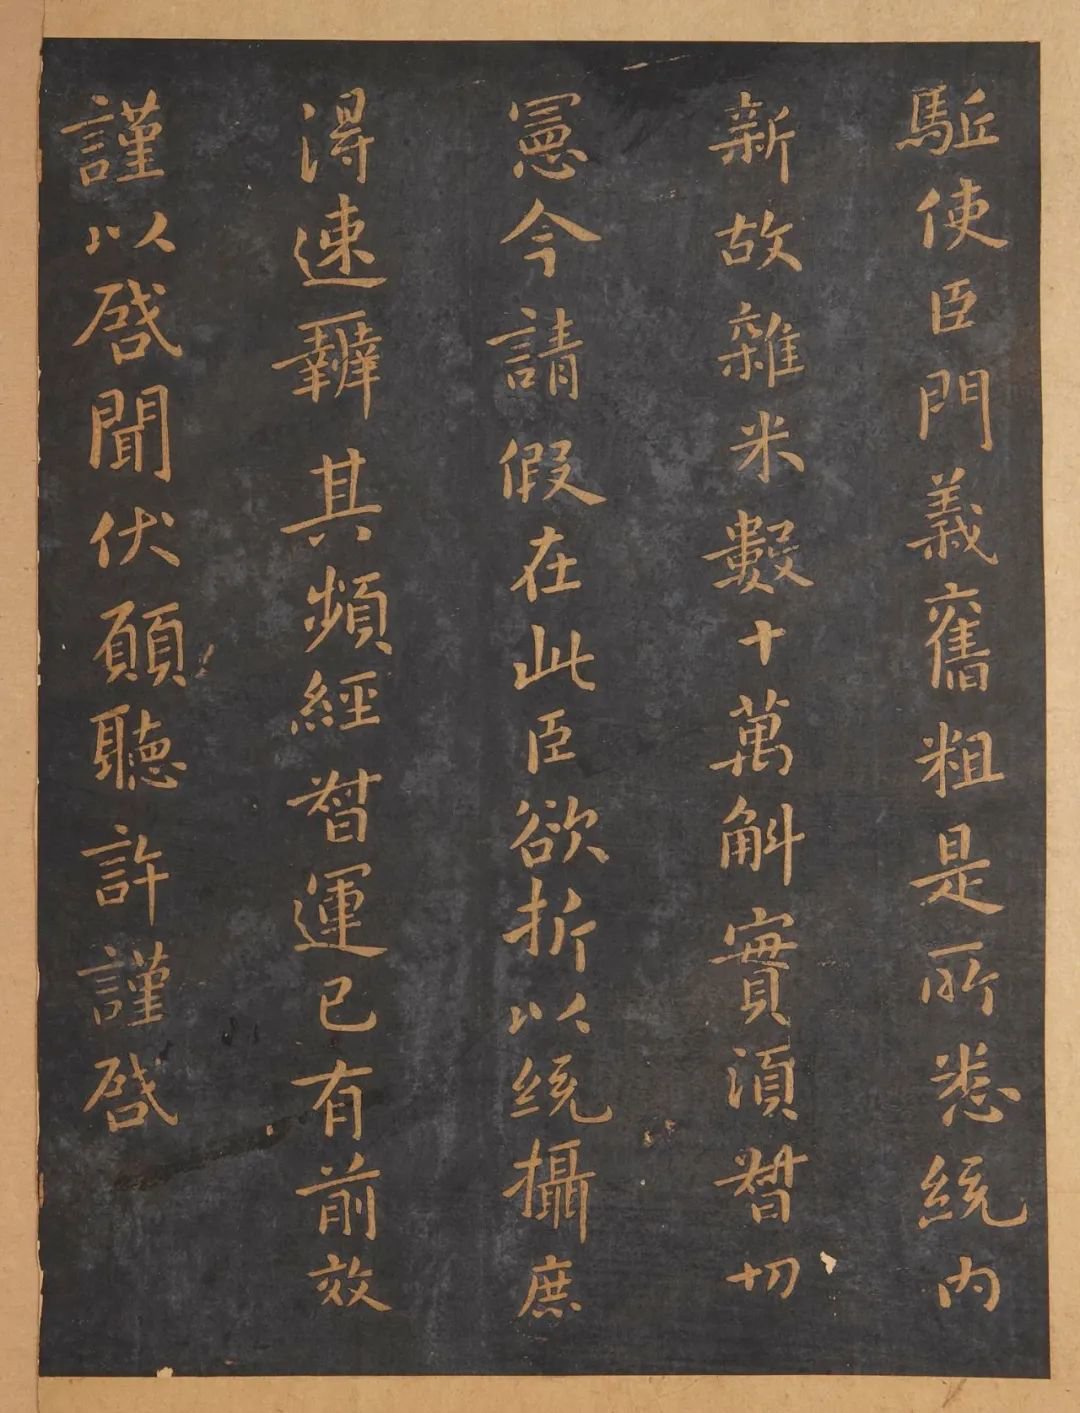 駈使臣門義舊粗是所悉統內
新故雜米數十萬斛實須督切
憲今請假在此臣欲折以統攝庶
得速辦其頻經督運已有前效
謹以啓聞伏願聽許謹啓